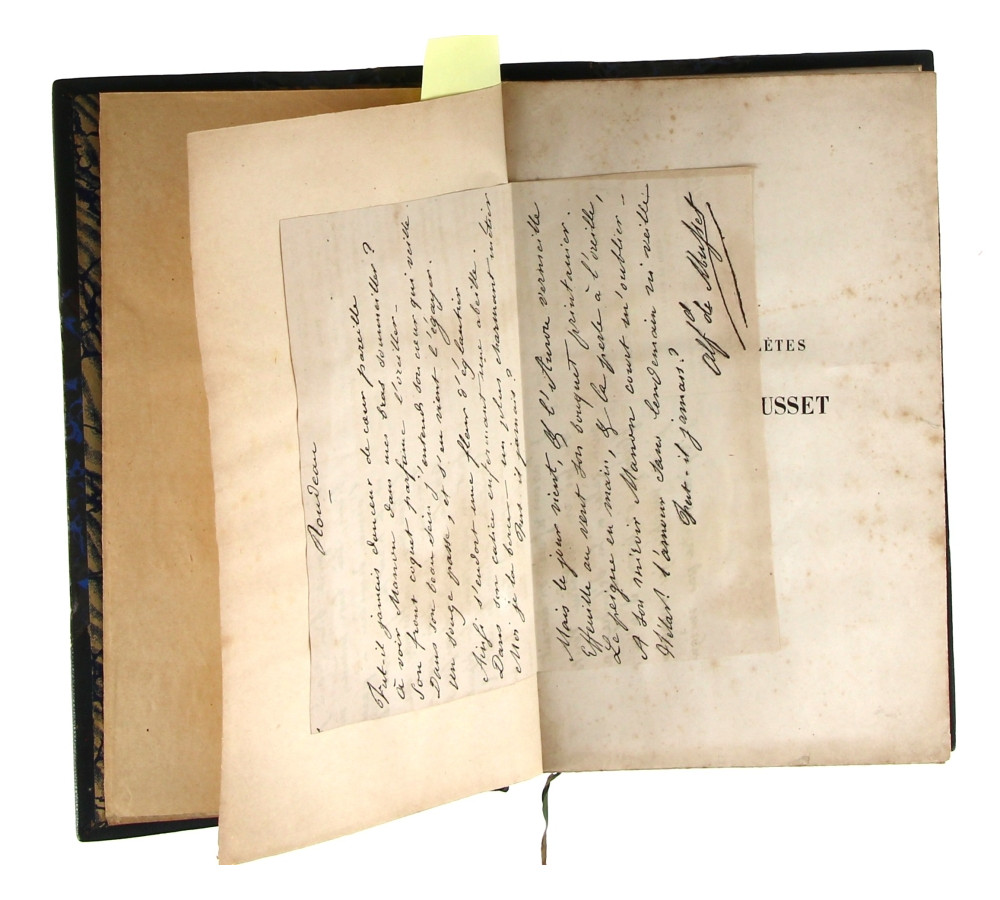 Rondeau
Fut-il jamais douceur de cœur pareille
à voir Manon dans mes bras sommeiller ?
Son front coquet parfume l'oreiller –
Dans son beau sein j'entends son cœur qui veille.
Un songe passe, et s'en vient l'égayer.
Ainsi s'endort une fleur d'églantier
Dans son calice enfermant une abeille.
Moi je la berce – un plus charmant métier
Fut-il jamais ?
Mais le jour vient, & l'Aurore vermeille
Effeuille au vent son bouquet printanier.
Le peigne en main, & la perle à l'oreille,
A son miroir Manon court m'oublier –
Hélas ! l'amour sans lendemain ni veille
Fut-il jamais ?
Alf^d de Musset
LÈTES
USSET